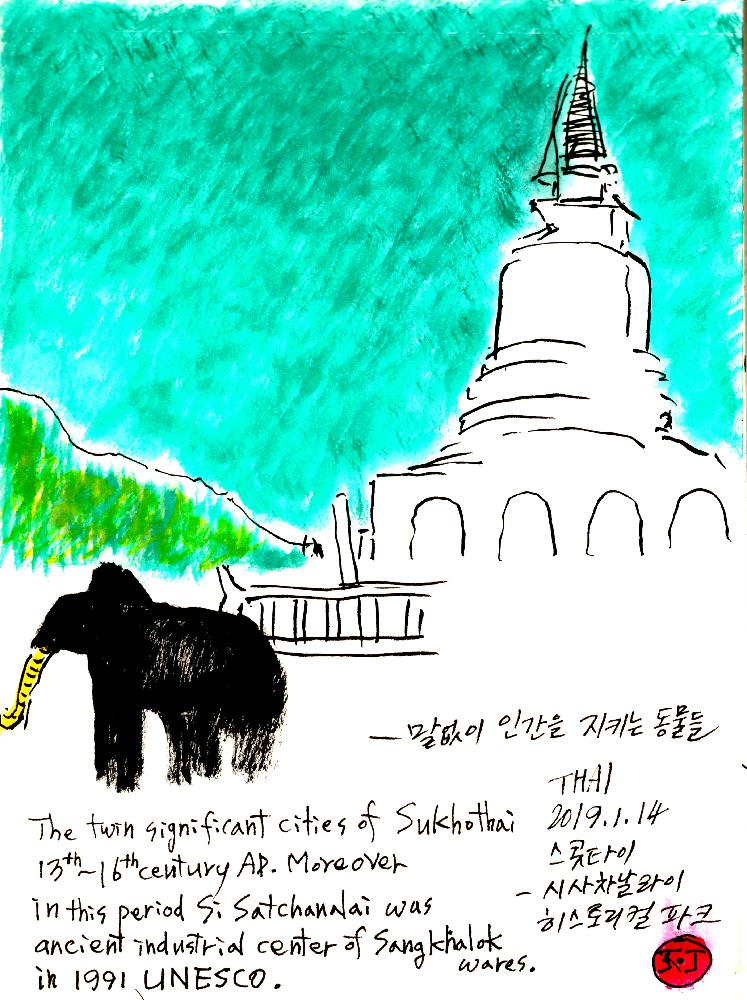 — 말없이 인간을 지키는 동물들
THAI
2019.1.14
스콧타이
- 시사차날라이
히스토리컬 파크
The twin significant cities of Sukhothai
13th~16th century AD. Moreover
in this period Si Satchanalai was
ancient industrial center of Sangkhalok
wares.
in 1991 UNESCO.
J.J